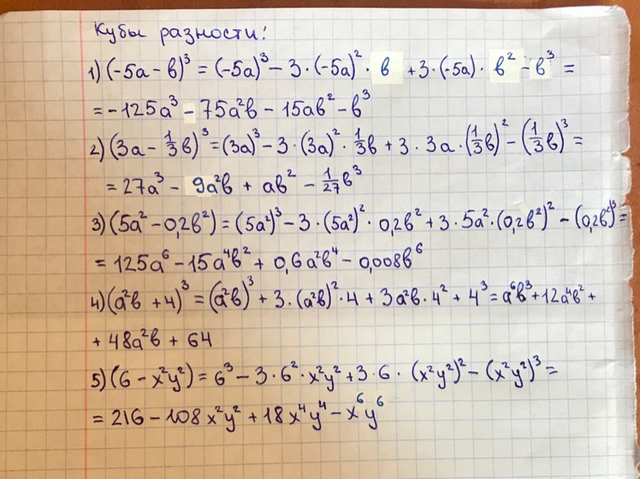 Кубы разности:
1) (-5a - b)³ = (-5a)³ - 3 · (-5a)² · b + 3 · (-5a) · b² - b³ =
= -125a³ - 75a²b - 15ab² - b³
2) (3a - 1/3 b)³ = (3a)³ - 3 · (3a)² · 1/3 b + 3 · 3a · (1/3 b)² - (1/3 b)³ =
= 27a³ - 9a²b + ab² - 1/27 b³
3) (5a² - 0,2b²) = (5a²)³ - 3 · (5a²)² · 0,2b² + 3 · 5a² · (0,2b²)² - (0,2b²)³ =
= 125a⁶ - 15a⁴b² + 0,6a²b⁴ - 0,008b⁶
4) (a²b + 4)³ = (a²b)³ + 3 · (a²b)² · 4 + 3a²b · 4² + 4³ = a⁶b³ + 12a⁴b² +
+ 48a²b + 64
5) (6 - x²y²) = 6³ - 3 · 6² · x²y² + 3 · 6 · (x²y²)² - (x²y²)³ =
= 216 - 108x²y² + 18x⁴y⁴ - x⁶y⁶